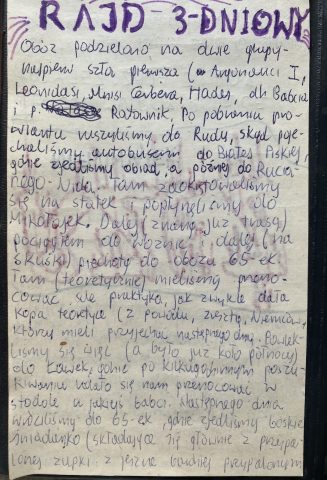 RAJD 3-DNIOWY
Obóz podzielono na dwie grupy-
najpierw szła pierwsza (Argonauci I,
Leonidasi, Mnisi Cerbera, Hades, dh Babcia
i p. Ratownik. Po pobraniu pro-
wiantu ruszyliśmy do Rudy, skąd poje-
chaliśmy autobusem do Białej Piskiej,
gdzie zjedliśmy obiad, a później do Rucia-
nego-Nida. Tam zaokrętowaliśmy
się na statek i popłynęliśmy do
Mikołajek. Dalej (znaną już trasą)
pociągiem do Woźnic i dalej (na
skuśki) piechotą do obozu 65-ek
Tam (teoretycznie) mieliśmy preno-
cować ale praktyka, jak zwykle dała
kopa teoretyce (z powodu, zresztą, Niemców,
którzy mieli przyjechać następnego dnia). Powlek-
liśmy się więc (a było już koło północy)
do Ławek, gdzie po kilkugodzinnym poszu-
kiwaniu udało się nam przenocować w
stodole u jakiejś babci. Następnego dnia
wróciliśmy do 65-ek, gdzie zjedliśmy boskie
śniadanko (składające się głównie z przypa-
lonej zupki i z jeszcze bardziej przypalonym